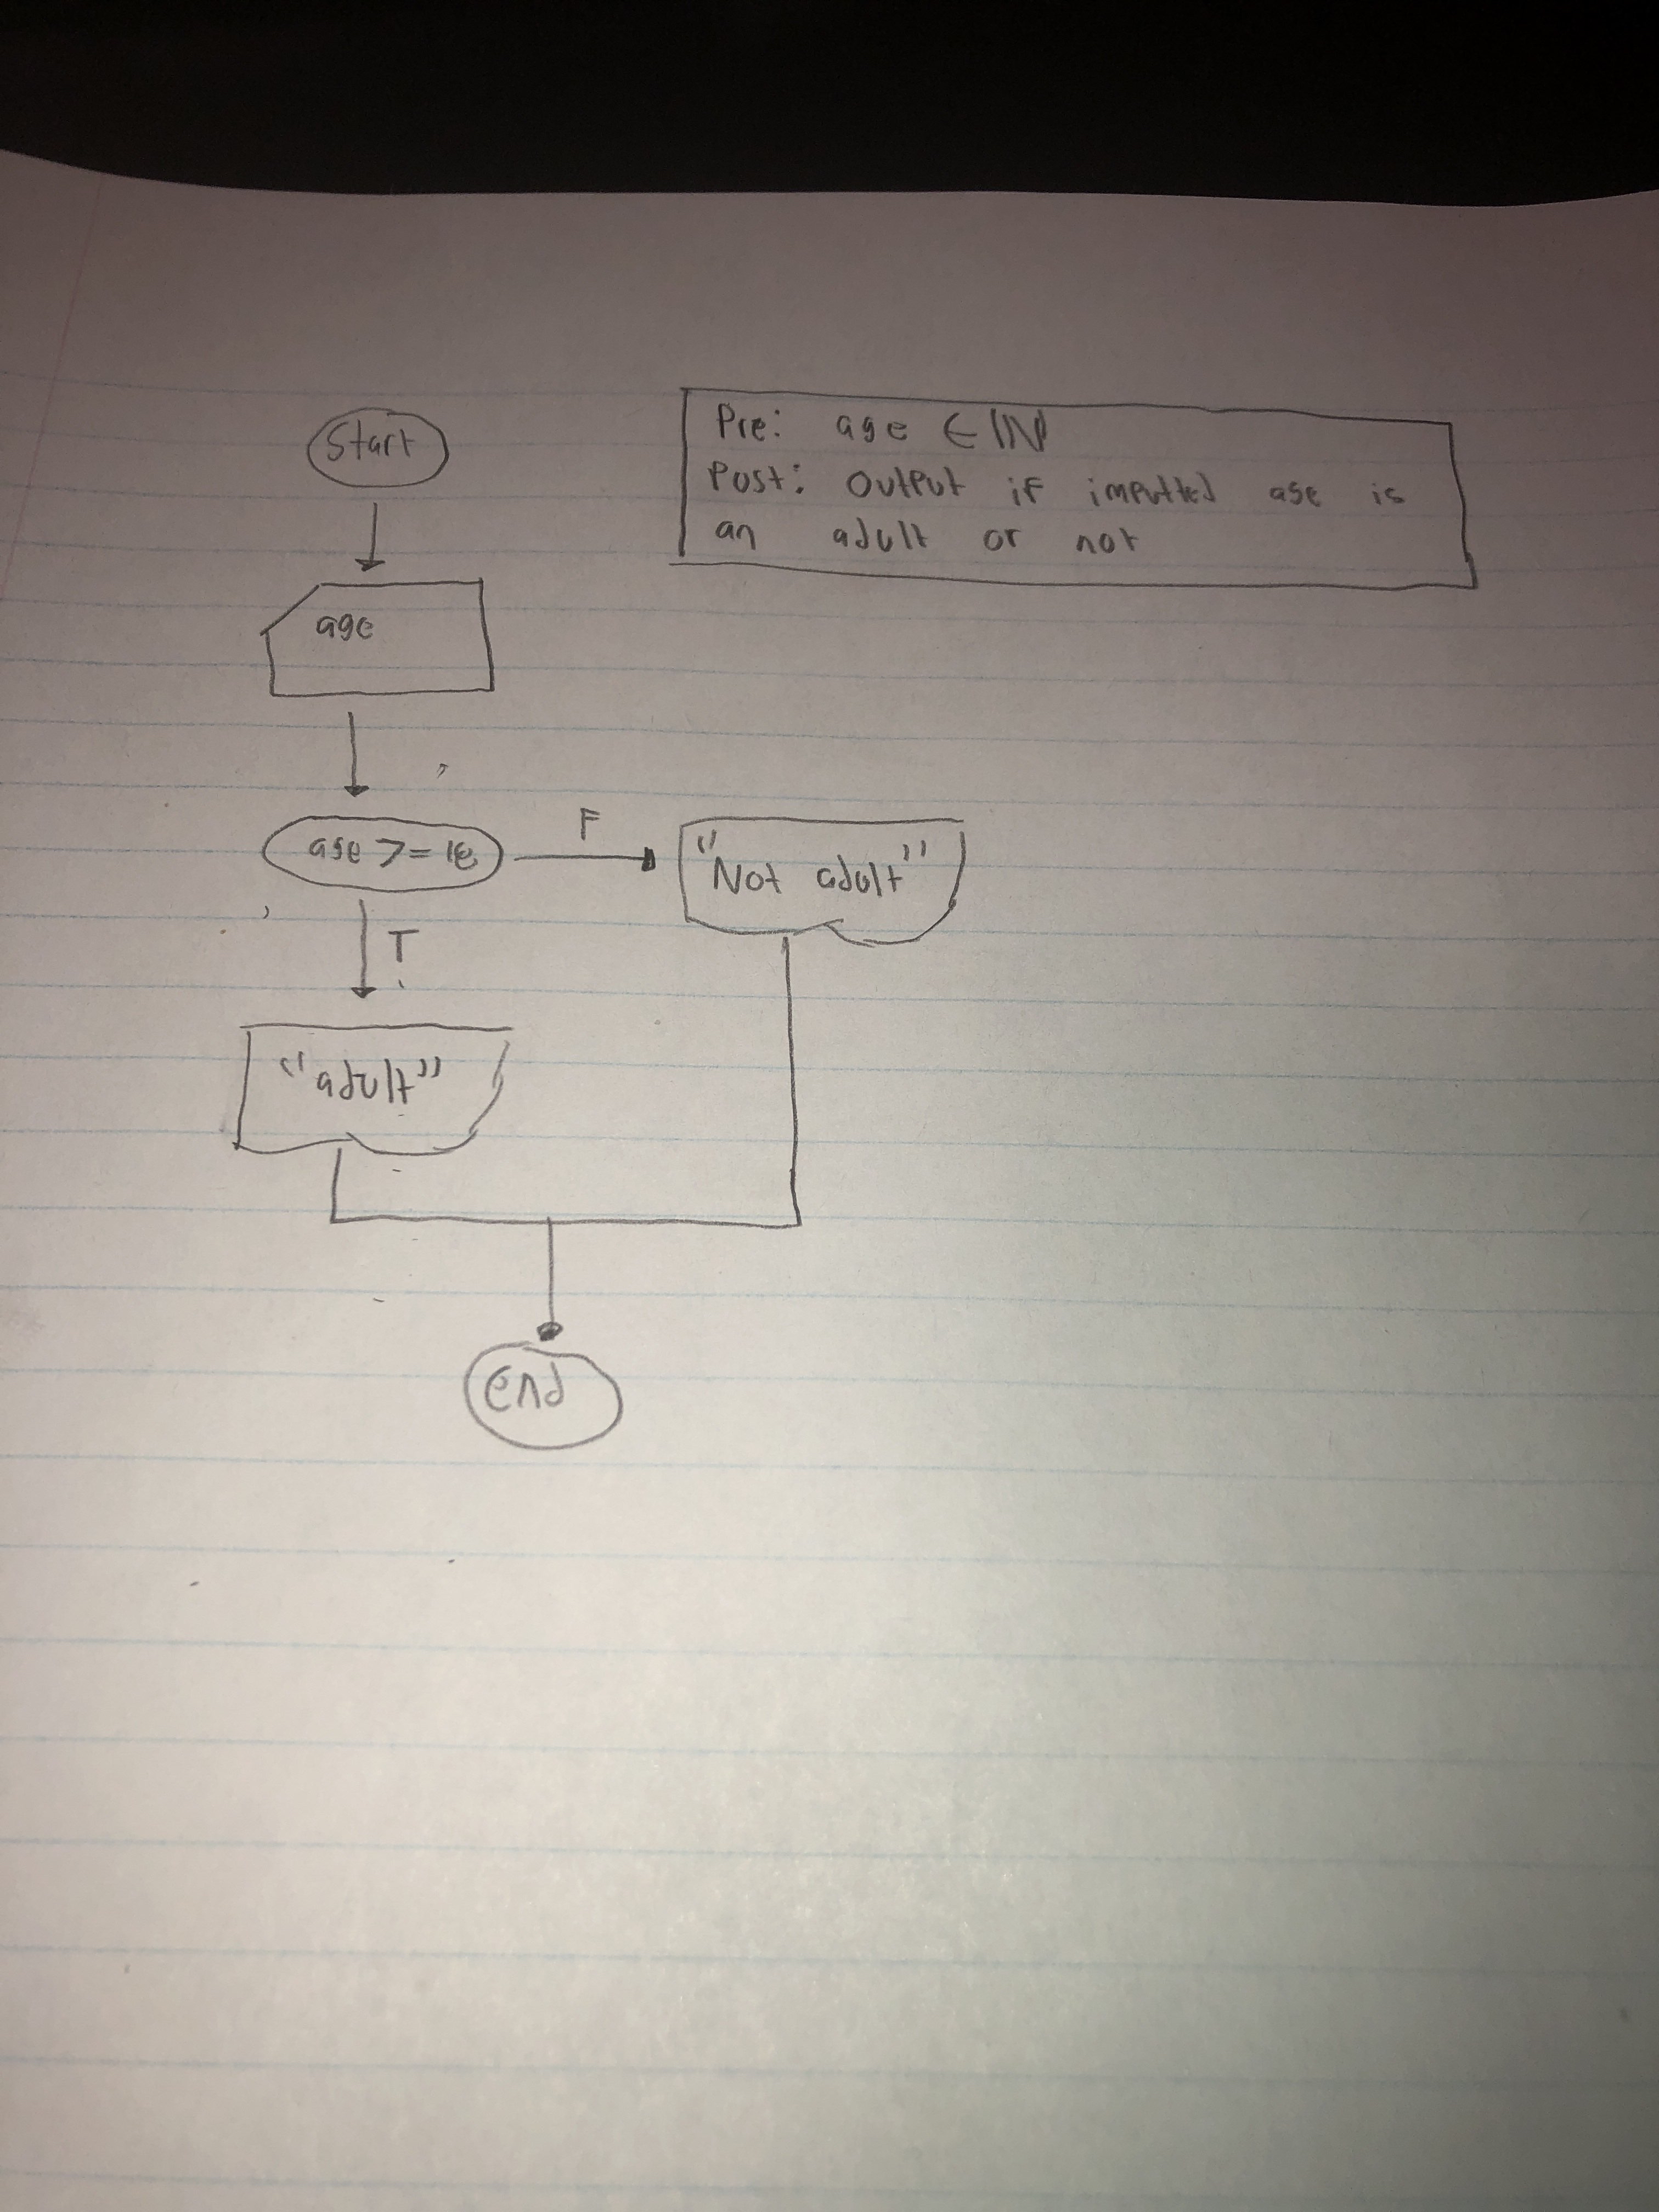 Start
Pre: age ∈ ℕ
Post: output if imputted age is
an adult or not
age
age >= 18
F
"Not adult"
T
"adult"
end